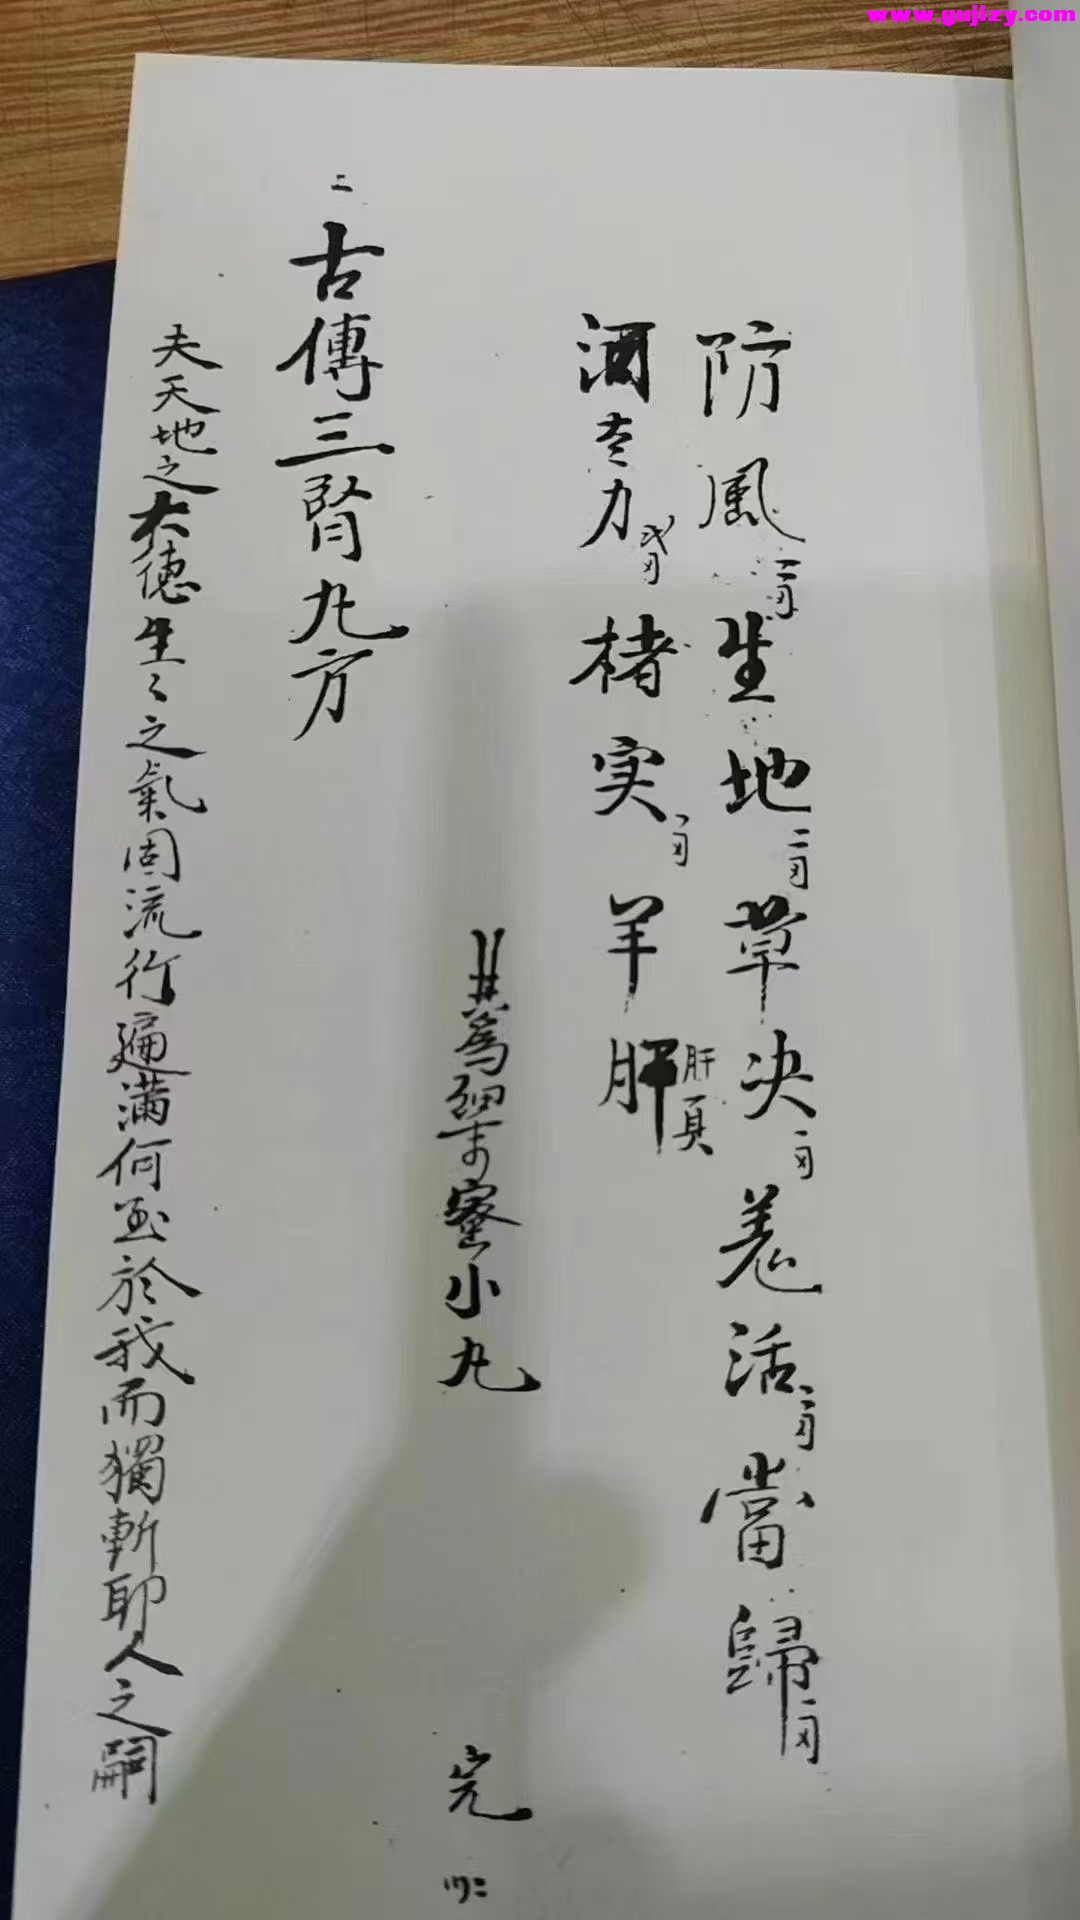 www.gujizy.com
防風二両生地二両草决一両羌活一両當歸一両
酒芩力楮实一両羊肝
肝頁
共為細末蜜小丸
完
二
古傳三腎丸方
夫天地之大德生〻之氣周流行遍滿何至於我而獨斬耶人之嗣